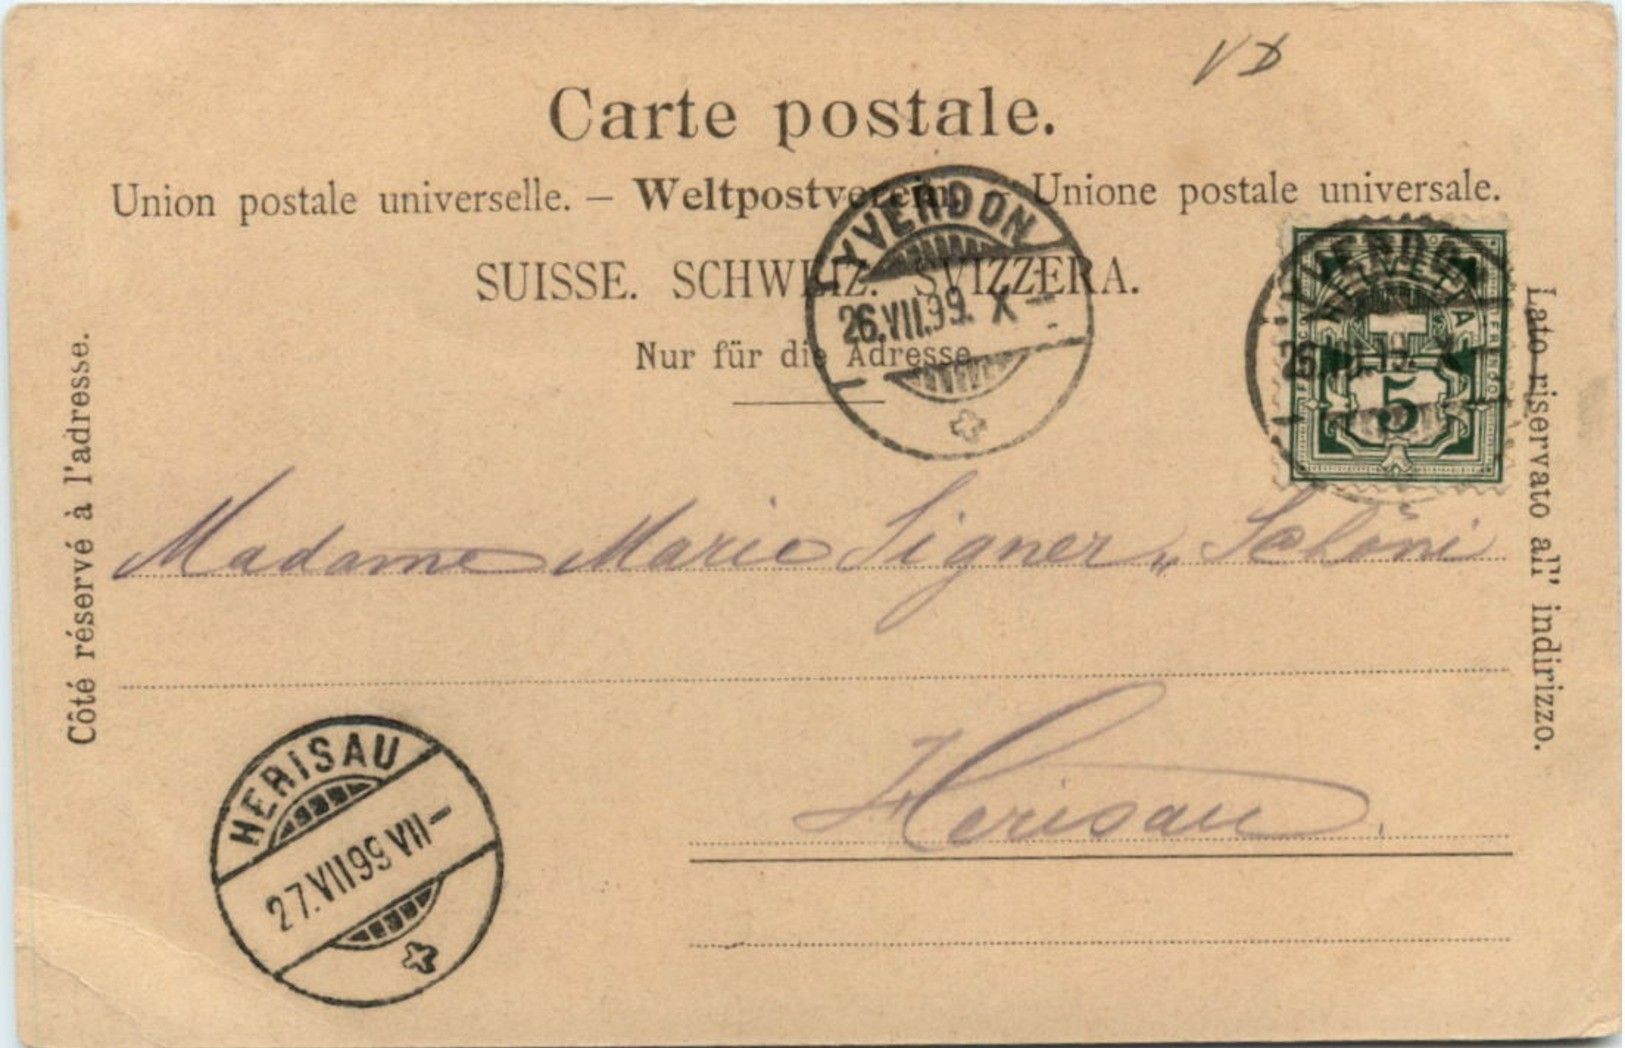 VD
Carte postale.
Union postale universelle. – Weltpostverein. – Unione postale universale.
SUISSE. SCHWEIZ. SVIZZERA.
Nur für die Adresse
YVERDON
26.VII.99. X–
YVERDON
HELVETIA
5
Côté réservé à l'adresse.
Lato riservato all' indirizzo.
Madame Marie Signer „ Schöni
Herisau.
HERISAU
27.VII.99 VII–